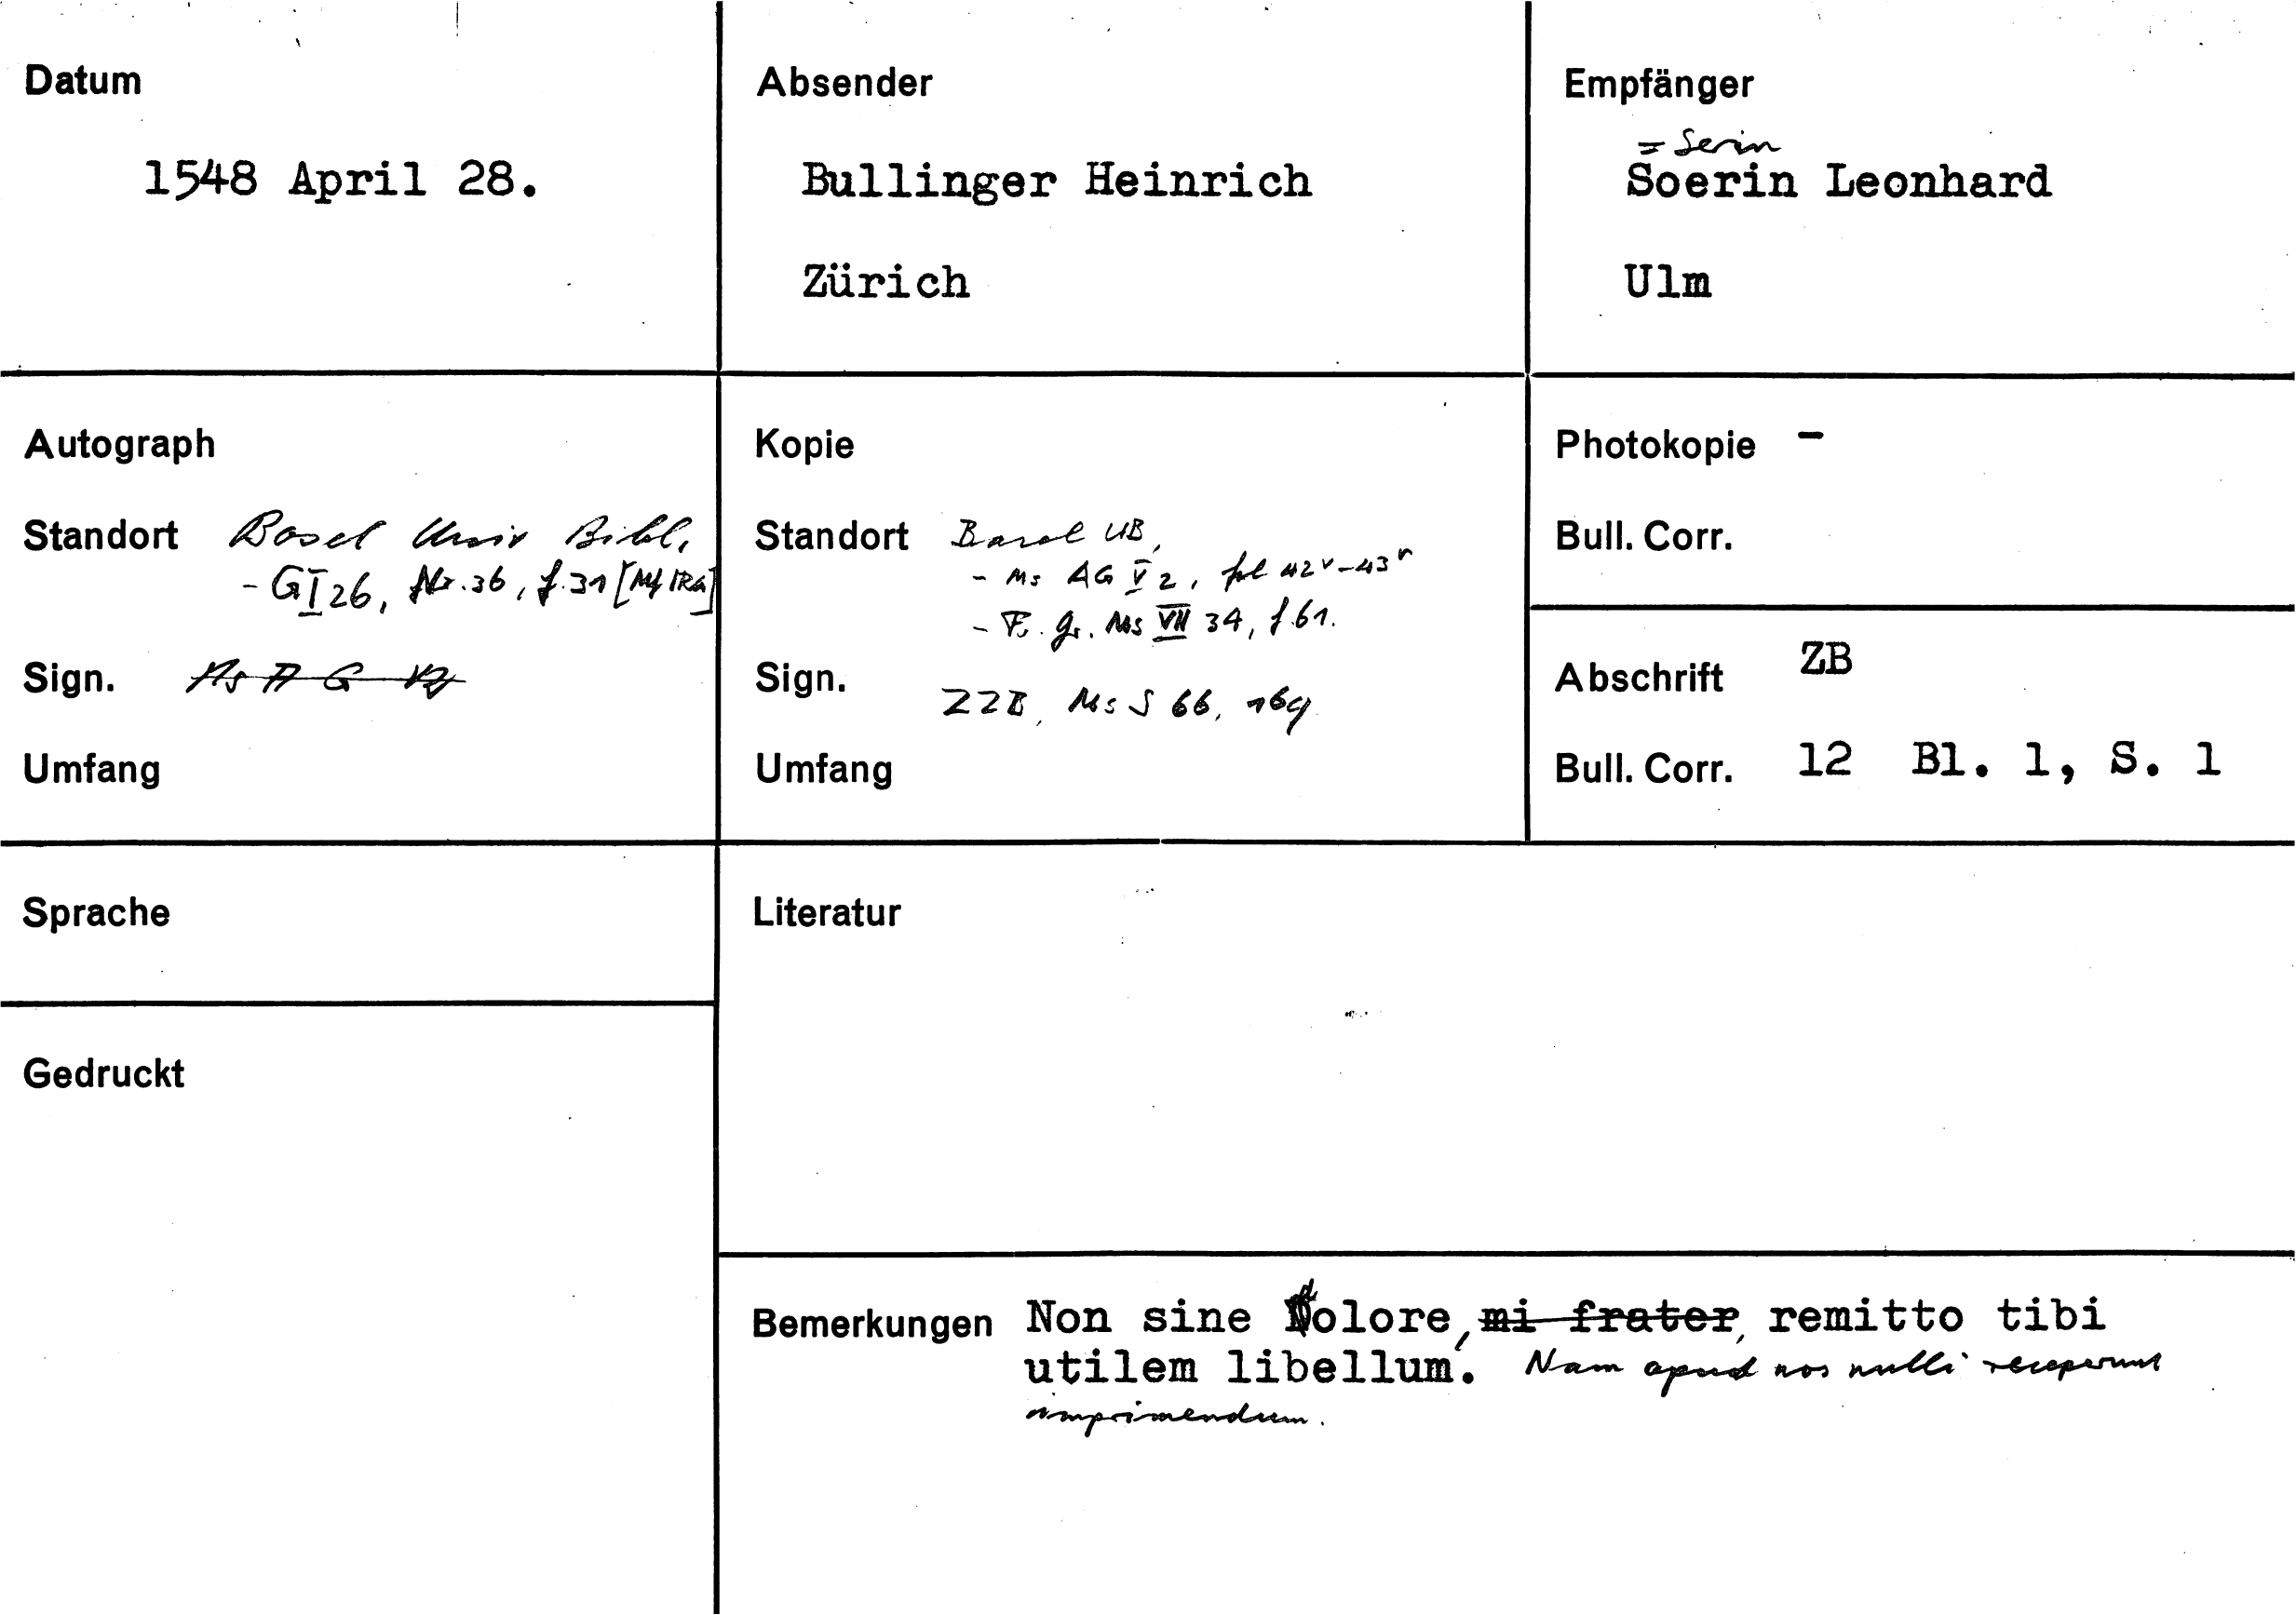 Datum
1548 April 28.
Absender
Bullinger Heinrich
Zürich
Empfänger
= Serin
Soerin Leonhard
Ulm
Autograph
Standort Basel Univ Bibl.
- G I 26, Nr. 36, f. 31 [Mf IRG]
Sign. Ms A G V 2
Umfang
Kopie
Standort Basel UB,
- Ms AG V 2, fol 42v-43r
- Fr. gr. Ms VII 34, f. 61.
Sign. ZZB, Ms S 66, 169
Umfang
Photokopie -
Bull. Corr.
Abschrift ZB
Bull. Corr. 12 Bl. 1, S. 1
Sprache
Gedruckt
Literatur
Bemerkungen Non sine dolore, mi frater, remitto tibi
utilem libellum. Nam apud nos nulli receperunt
imprimendum.